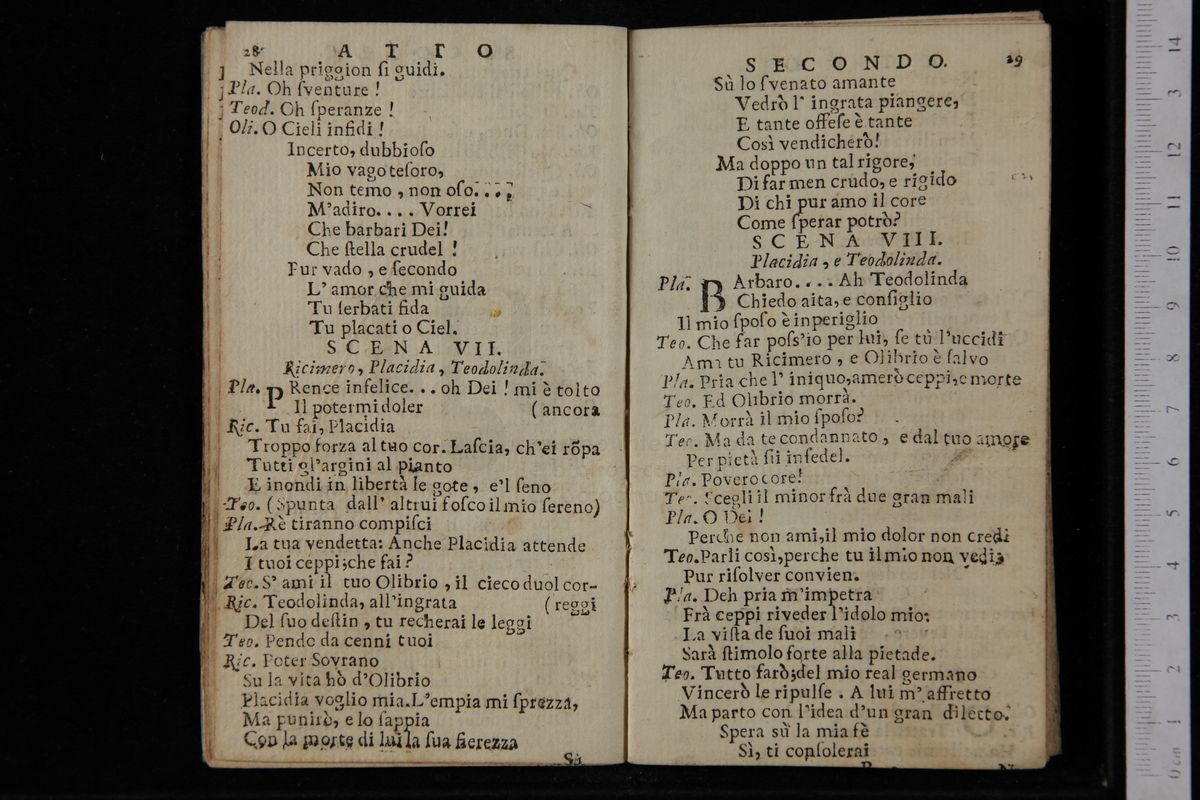 28 ATTO
Nella priggion ſi guidi.
Pla. Oh ſventure !
Teod. Oh ſperanze !
Oli. O Cieli infidi !
Incerto, dubbioſo
Mio vago teſoro,
Non temo , non oſo. . . .
M'adiro. . . . Vorrei
Che barbari Dei!
Che ſtella crudel !
Pur vado , e ſecondo
L' amor che mi guida
Tu ſerbati fida
Tu placati o Ciel.
SCENA VII.
Ricimero, Placidia, Teodolinda.
Pla. PRence infelice. . . oh Dei ! mi è tolto
Il poter mi doler (ancora
Ric. Tu ſai, Placidia
Troppo forza al tuo cor. Laſcia, ch'ei rõpa
Tutti gl'argini al pianto
E inondi in libertà le gote , e'l ſeno
Teo. (Spunta dall' altrui foſco il mio ſereno)
Pla. Rè tiranno compiſci
La tua vendetta: Anche Placidia attende
I tuoi ceppi; che fai ?
Teo. S' ami il tuo Olibrio , il cieco duol cor-
Ric. Teodolinda, all'ingrata (reggi
Del ſuo deſtin , tu recherai le leggi
Teo. Pende da cenni tuoi
Ric. Poter Sovrano
Su la vita hò d'Olibrio
Placidia voglio mia. L'empia mi ſprezza,
Ma punirò, e lo ſappia
Con la morte di lui la ſua fierezza
Sù
SECONDO. 29
Sù lo ſvenato amante
Vedrò l' ingrata piangere,
E tante offeſe è tante
Così vendicherò!
Ma doppo un tal rigore,
Di far men crudo, e rigido
Di chi pur amo il core
Come ſperar potrò?
SCENA VIII.
Placidia , e Teodolinda.
Pla. BArbaro. . . . Ah Teodolinda
Chiedo aita, e conſiglio
Il mio ſpoſo è in periglio
Teo. Che far poſs'io per lui, ſe tù l'uccidi
Ama tu Ricimero , e Olibrio è ſalvo
Pla. Pria che l' iniquo, amerò ceppi, e morte
Teo. Ed Olibrio morrà.
Pla. Morrà il mio ſpoſo?
Teo. Ma da te condannato , e dal tuo amore
Per pietà ſii infedel.
Pla. Povero core!
Teo. Scegli il minor frà due gran mali
Pla. O Dei !
Perche non ami, il mio dolor non credi
Teo. Parli così, perche tu il mio non vedi,
Pur riſolver convien.
Pla. Deh pria m'impetra
Frà ceppi riveder l'idolo mio:
La viſta de ſuoi mali
Sarà ſtimolo forte alla pietade.
Teo. Tutto farò; del mio real germano
Vincerò le ripulſe . A lui m' affretto
Ma parto con l'idea d'un gran diletto.
Spera sù la mia fè
Sì, ti conſolerai